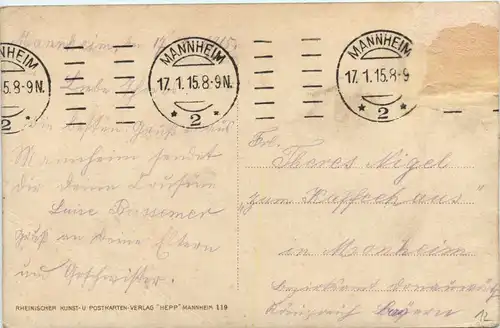 Mannheim, den 17. 1. 1915.
MANNHEIM
17.1.15.8-9N.
* 2 *
MANNHEIM
17.1.15.8-9
* 2 *
MANNHEIM
15.8-9N.
2
Liebe
die besten Grüße aus
Mannheim sendet
dir deine Cousine
Luise Bussemer
Gruß an deine Eltern
und Geschwister.
Frl.
Theres Nigel
"zum Kaffeehaus"
in Monheim
Bezirksamt Donauwörth
Königreich Bayern
RHEINISCHER KUNST- U POSTKARTEN-VERLAG "HEPP" MANNHEIM 119
12